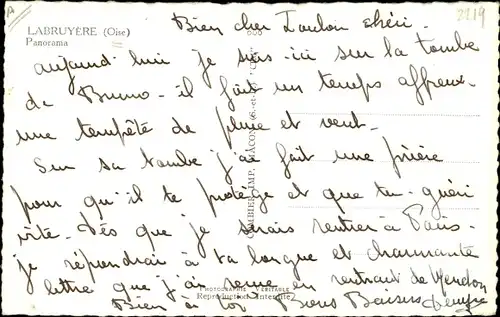 2219
LABRUYÈRE (Oise)
Panorama
Bien cher Loulou chéri.
aujourd'hui je suis ici sur la tombe
de Bruno - il fait un temps affreux
une tempête de pluie et vent -
Sur sa tombe j'ai fait une prière
pour qu'il te protège et que tu guéri
vite. Dès que je serais rentrer à Paris -
je répondrai à ta longue et charmante
lettre que j'ai reçue en rentrant de Meudon
Bien à toi Bons Baisers
PHOTOGRAPHIE VÉRITABLE
Reproduction Interdite
COMBIER IMP. MACON